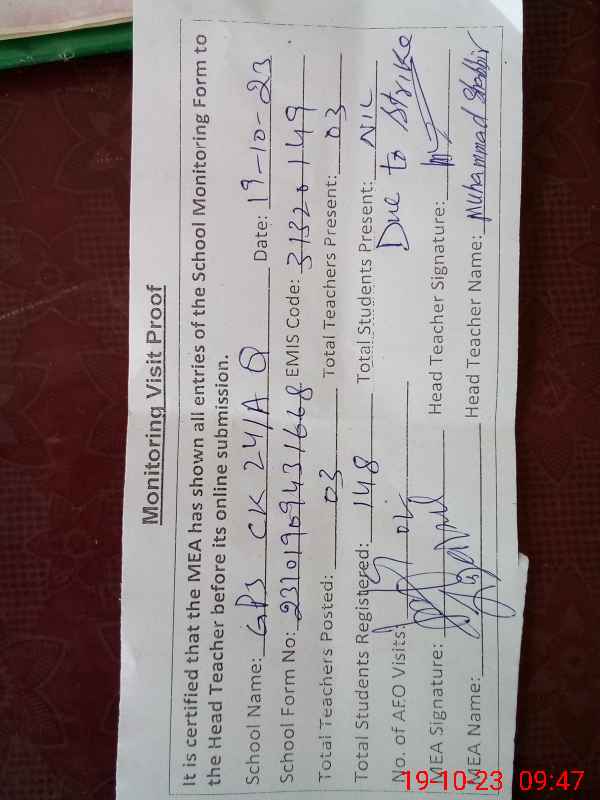 Monitoring Visit Proof
It is certified that the MEA has shown all entries of the School Monitoring Form to
the Head Teacher before its online submission.
School Name: GPS CK 241A Q Date: 19-10-23
School Form No: 23101909431668 EMIS Code: 31320149
Total Teachers Posted: 03 Total Teachers Present: 03
Total Students Registered: 148 Total Students Present: NIL
No. of AEO Visits: 04 Due to Strike
MEA Signature: Head Teacher Signature:
MEA Name: Head Teacher Name: Muhammad Shabbir
19-10-23 09:47